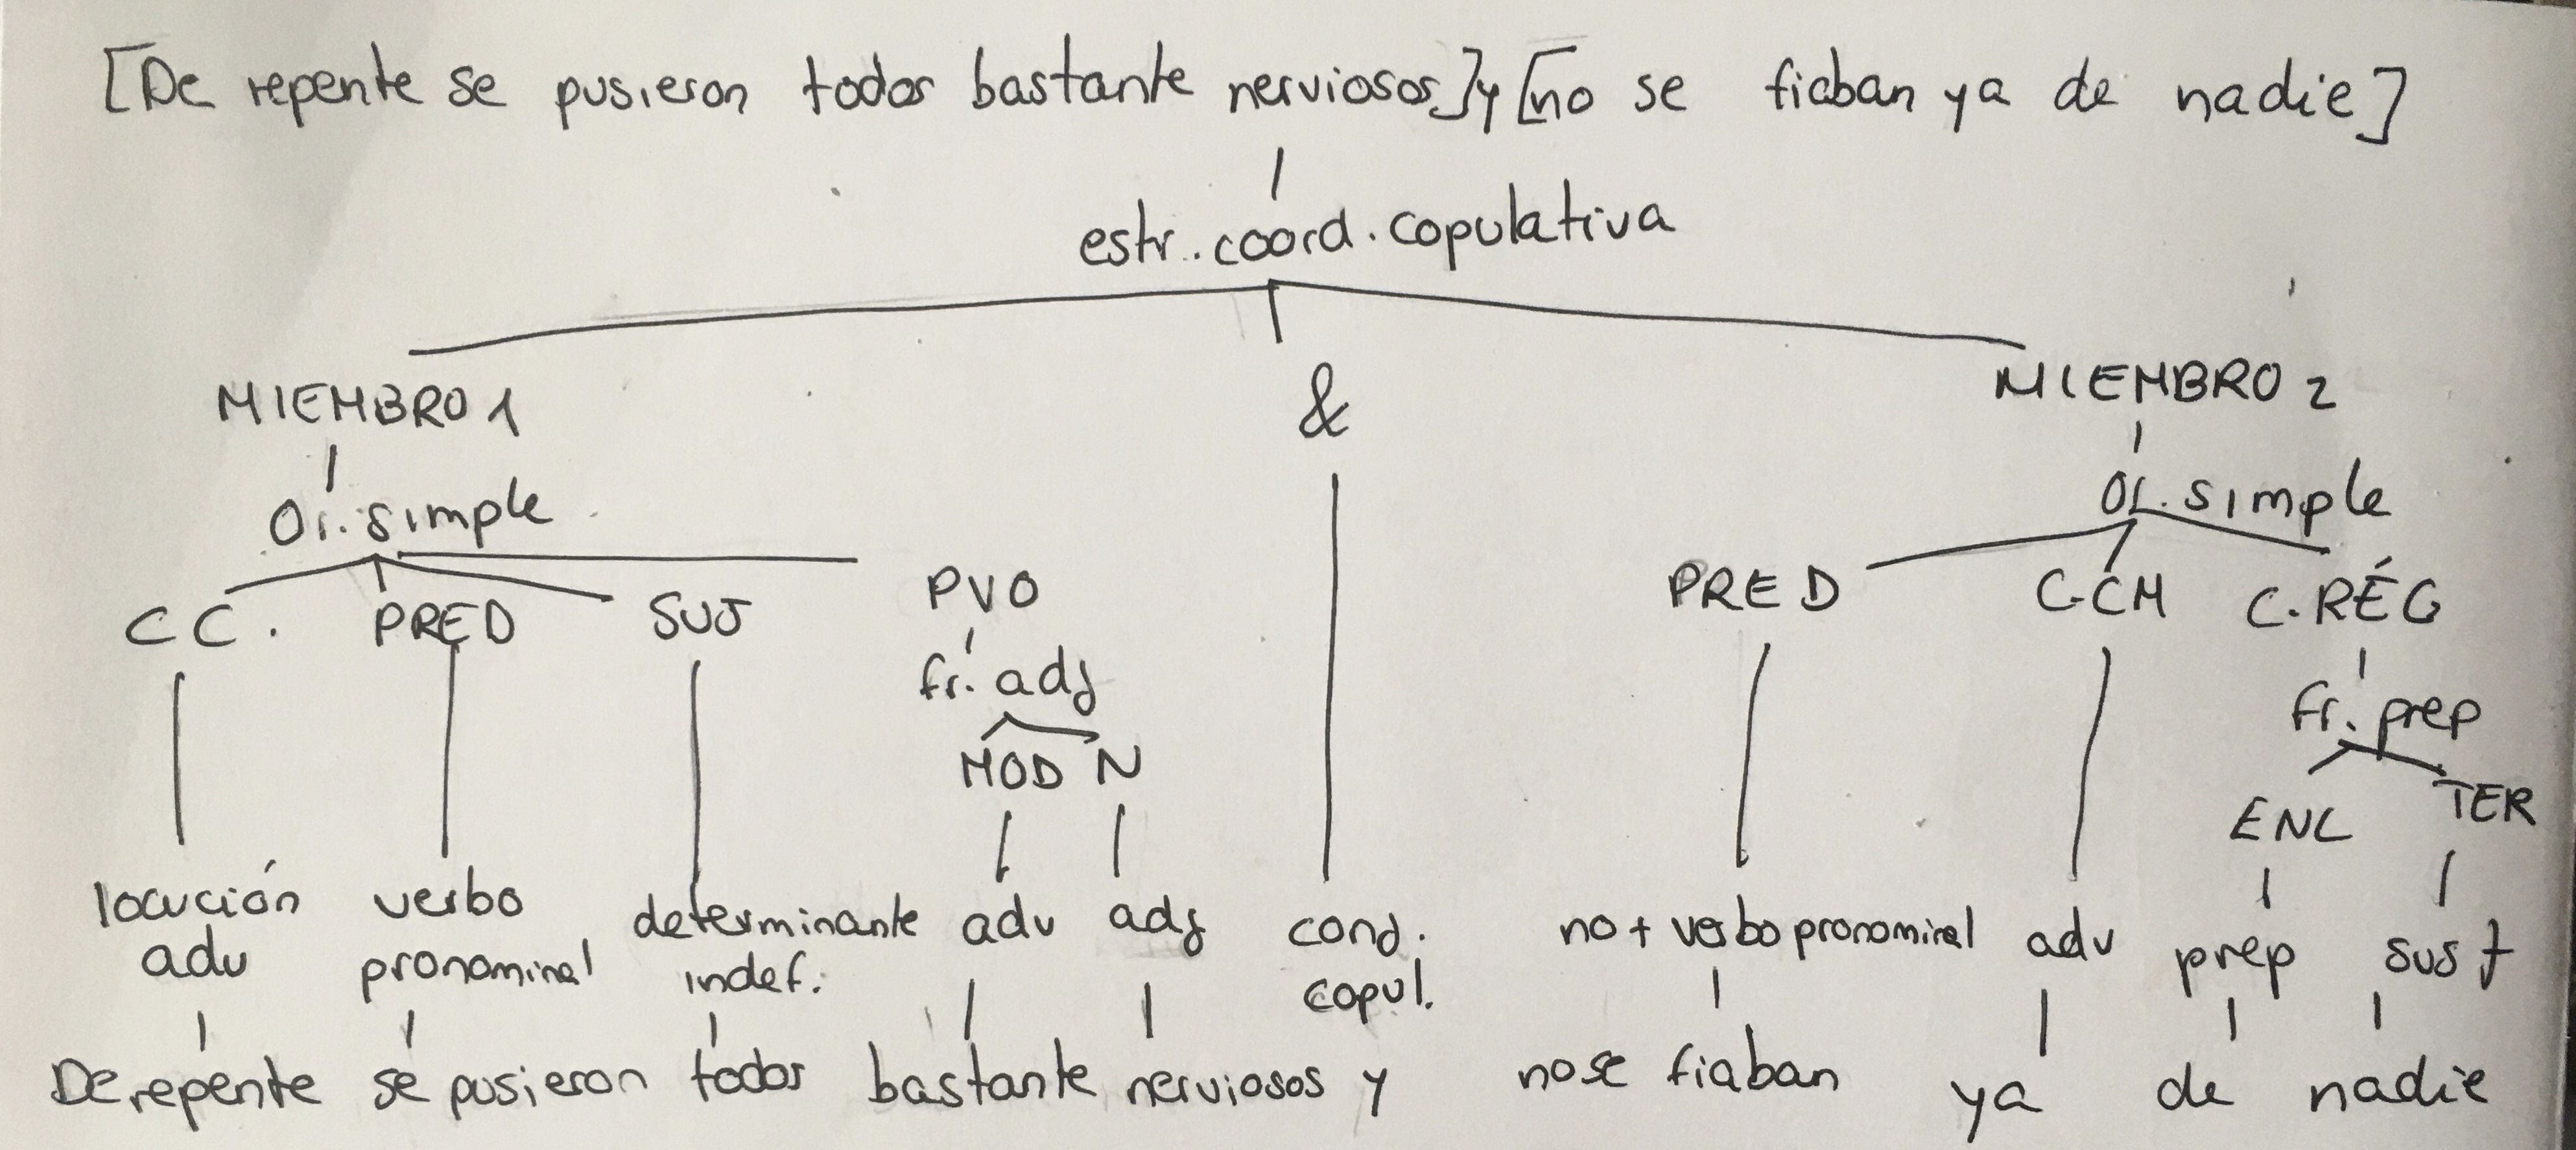 [De repente se pusieron todos bastante nerviosos] y [no se fiaban ya de nadie]
estr. coord. copulativa
MIEMBRO 1 & MIEMBRO 2
Or. simple Or. simple
CC. PRED SUJ PVO PRED C.CM C.RÉG
fr. adj fr. prep
MOD N ENL TER
locución adv verbo pronominal determinante indef. adv adj conj. copul. no + verbo pronominal adv prep sust
De repente se pusieron todos bastante nerviosos y no se fiaban ya de nadie